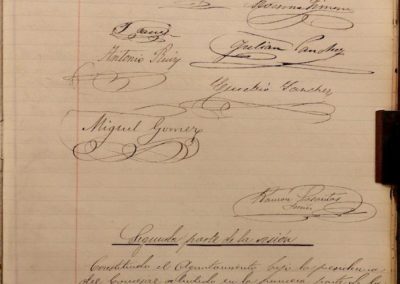 Antonio Ruiz
Julian Sanchez
Eusebio Sanchez
Miguel Gomez
Ramón
Segunda parte de la sesión
Constituido el Ayuntamiento bajo la presidencia
del Concejal en la primera parte de la